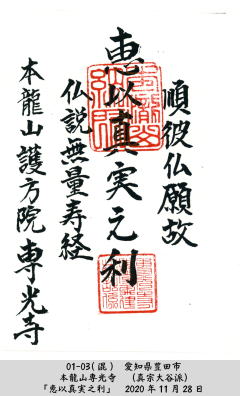 順彼仏願故
恵以真実之利
仏説無量寿経
本龍山 護方院 専光寺
01-03(混) 愛知県豊田市
本龍山専光寺 (真宗大谷派)
「恵以真実之利」 2020年11月28日